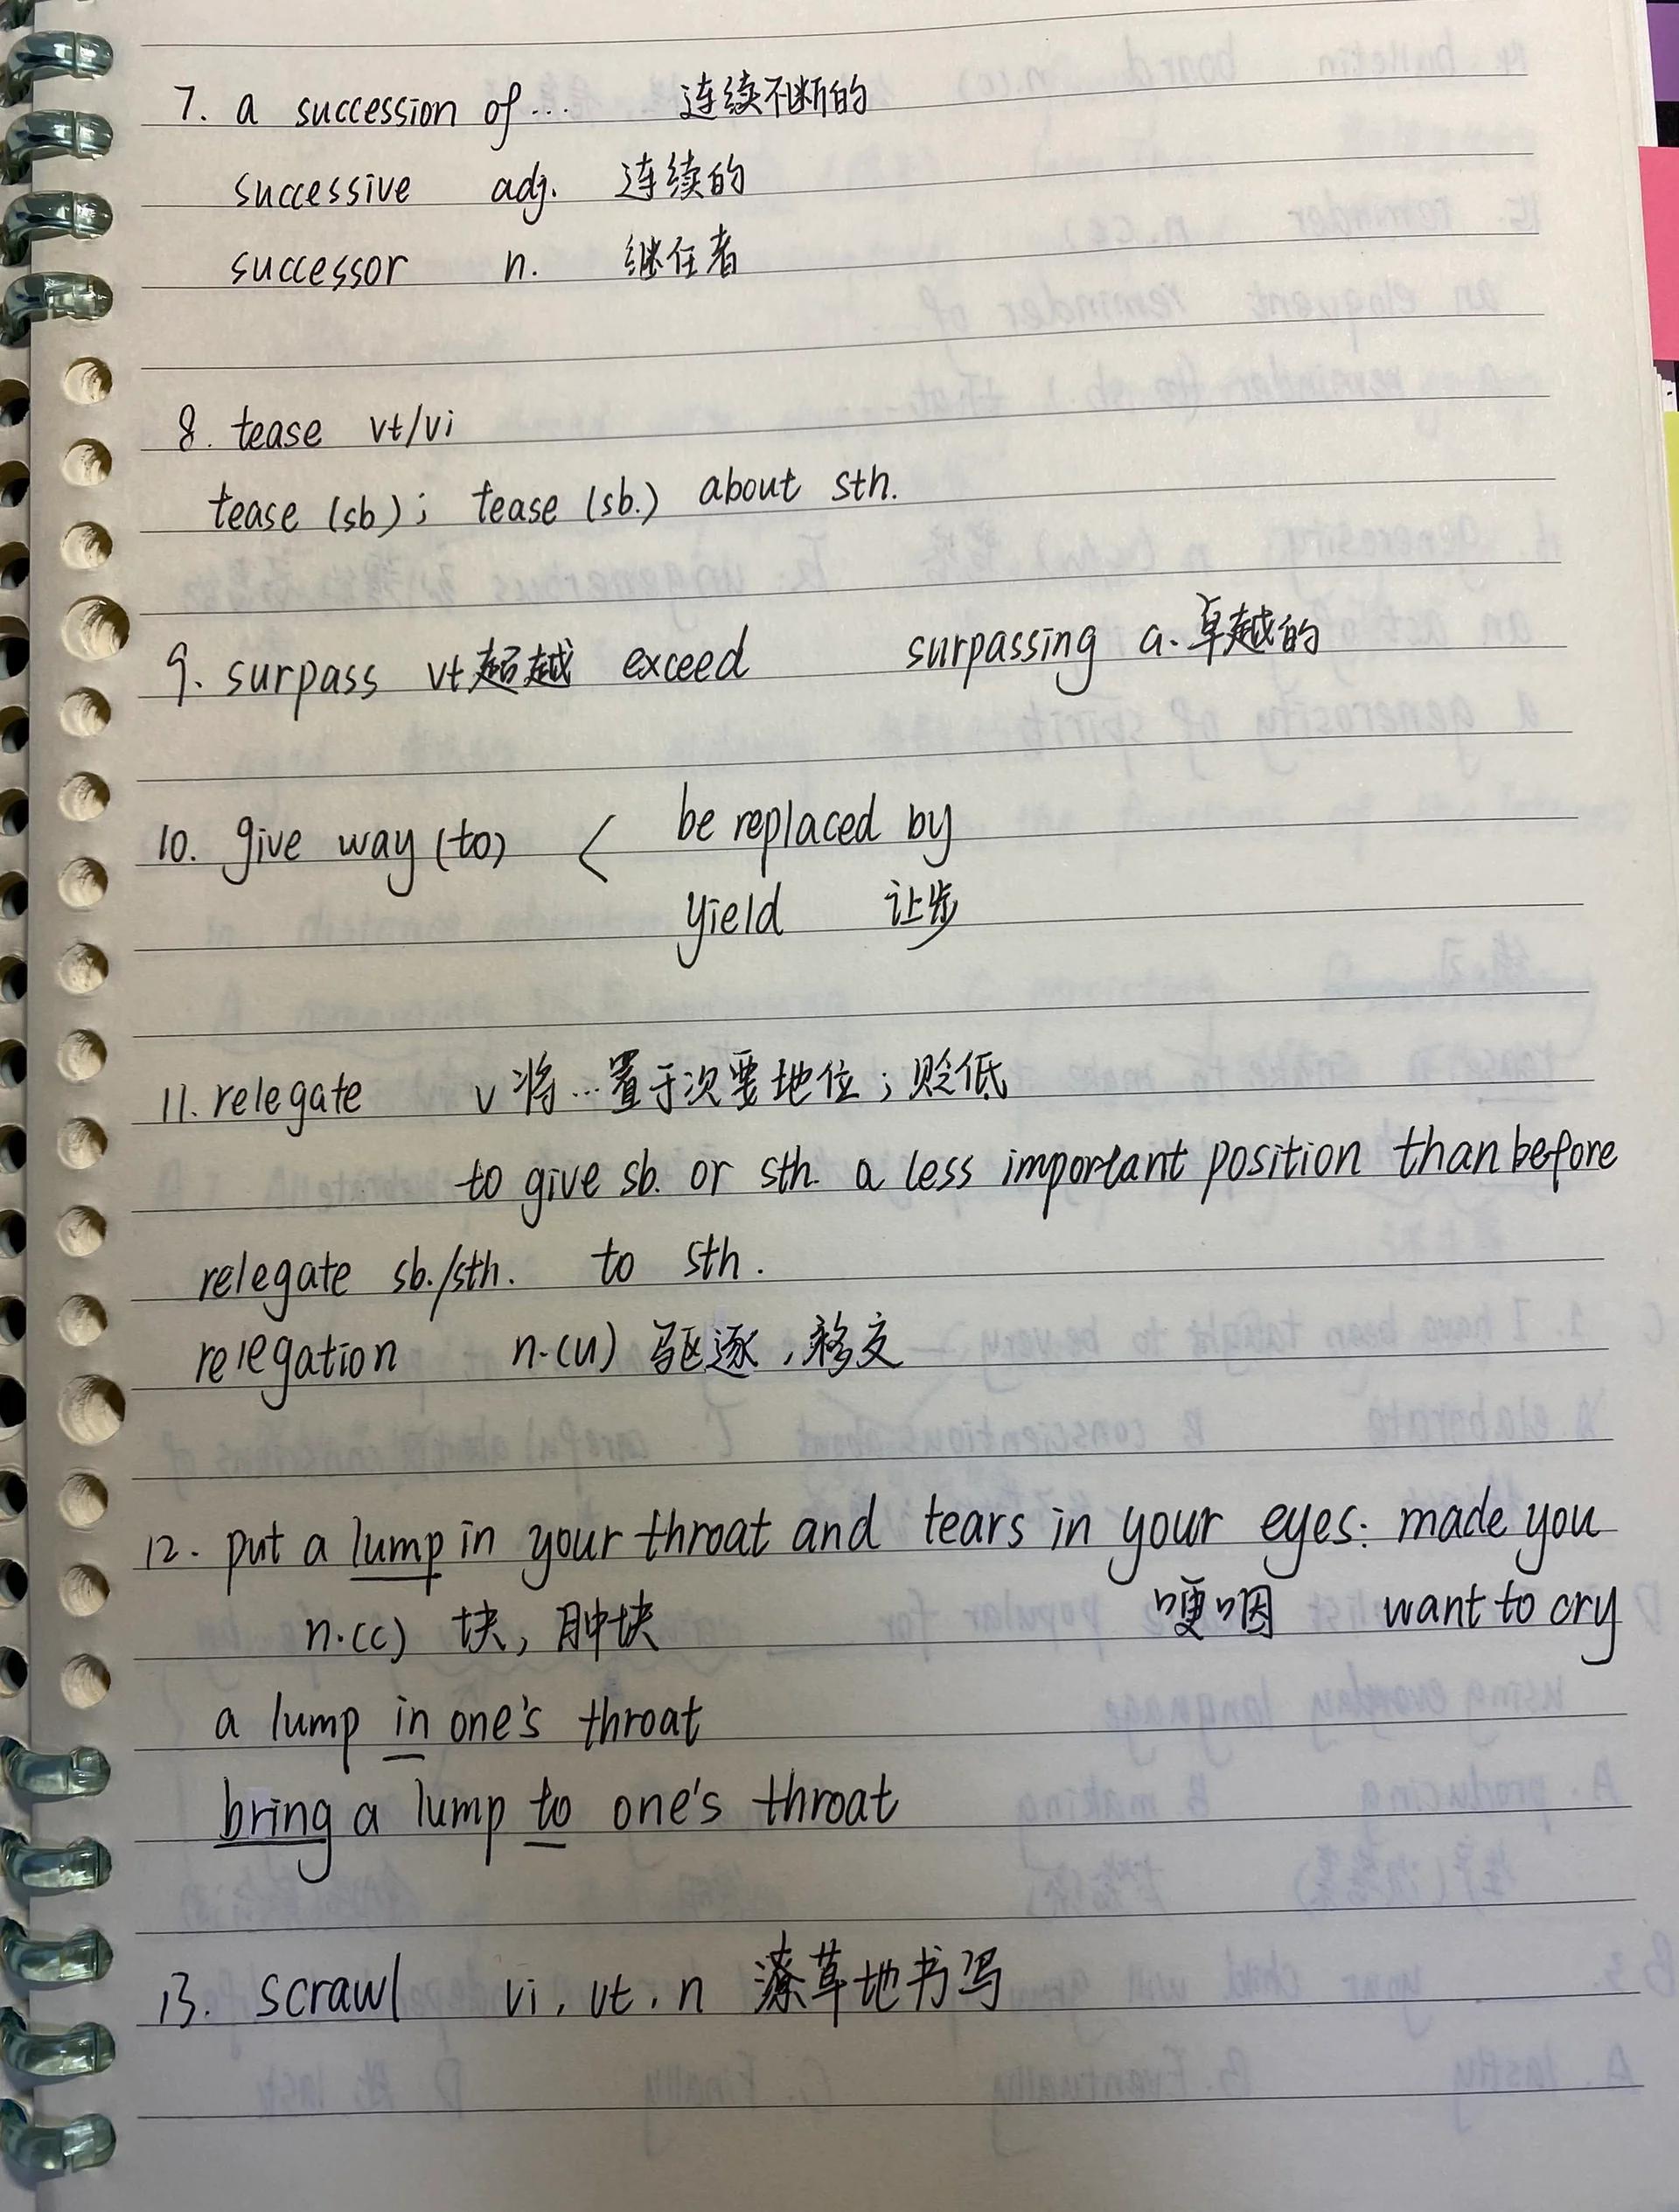 7. a succession of ... 连续不断的
successive adj. 连续的
successor n. 继任者
8. tease vt/vi
tease (sb); tease (sb.) about sth.
9. surpass vt 超越 exceed surpassing a. 卓越的
10. give way (to) < be replaced by
yield 让步
11. relegate v 将...置于次要地位; 贬低
to give sb. or sth. a less important position than before
relegate sb./sth. to sth.
relegation n.(u) 驱逐, 移交
12. put a lump in your throat and tears in your eyes: made you
n.(c) 块, 肿块 哽咽 want to cry
a lump in one's throat
bring a lump to one's throat
13. scrawl vi, vt, n 潦草地书写